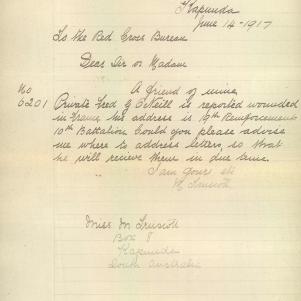 Kapunda
June 14-1917
To the Red Cross Bureau
Dear Sir or Madam
No
6201
A friend of mine
Private Fred G O'Neill is reported wounded
in France his address is 19th Reinforcement
10th Battalion Could you please advise
me where to address letters, so that
he will recieve them in due time.
I am yours etc
M Truscott
Miss M Truscott
Box 8
Kapunda
South Australia